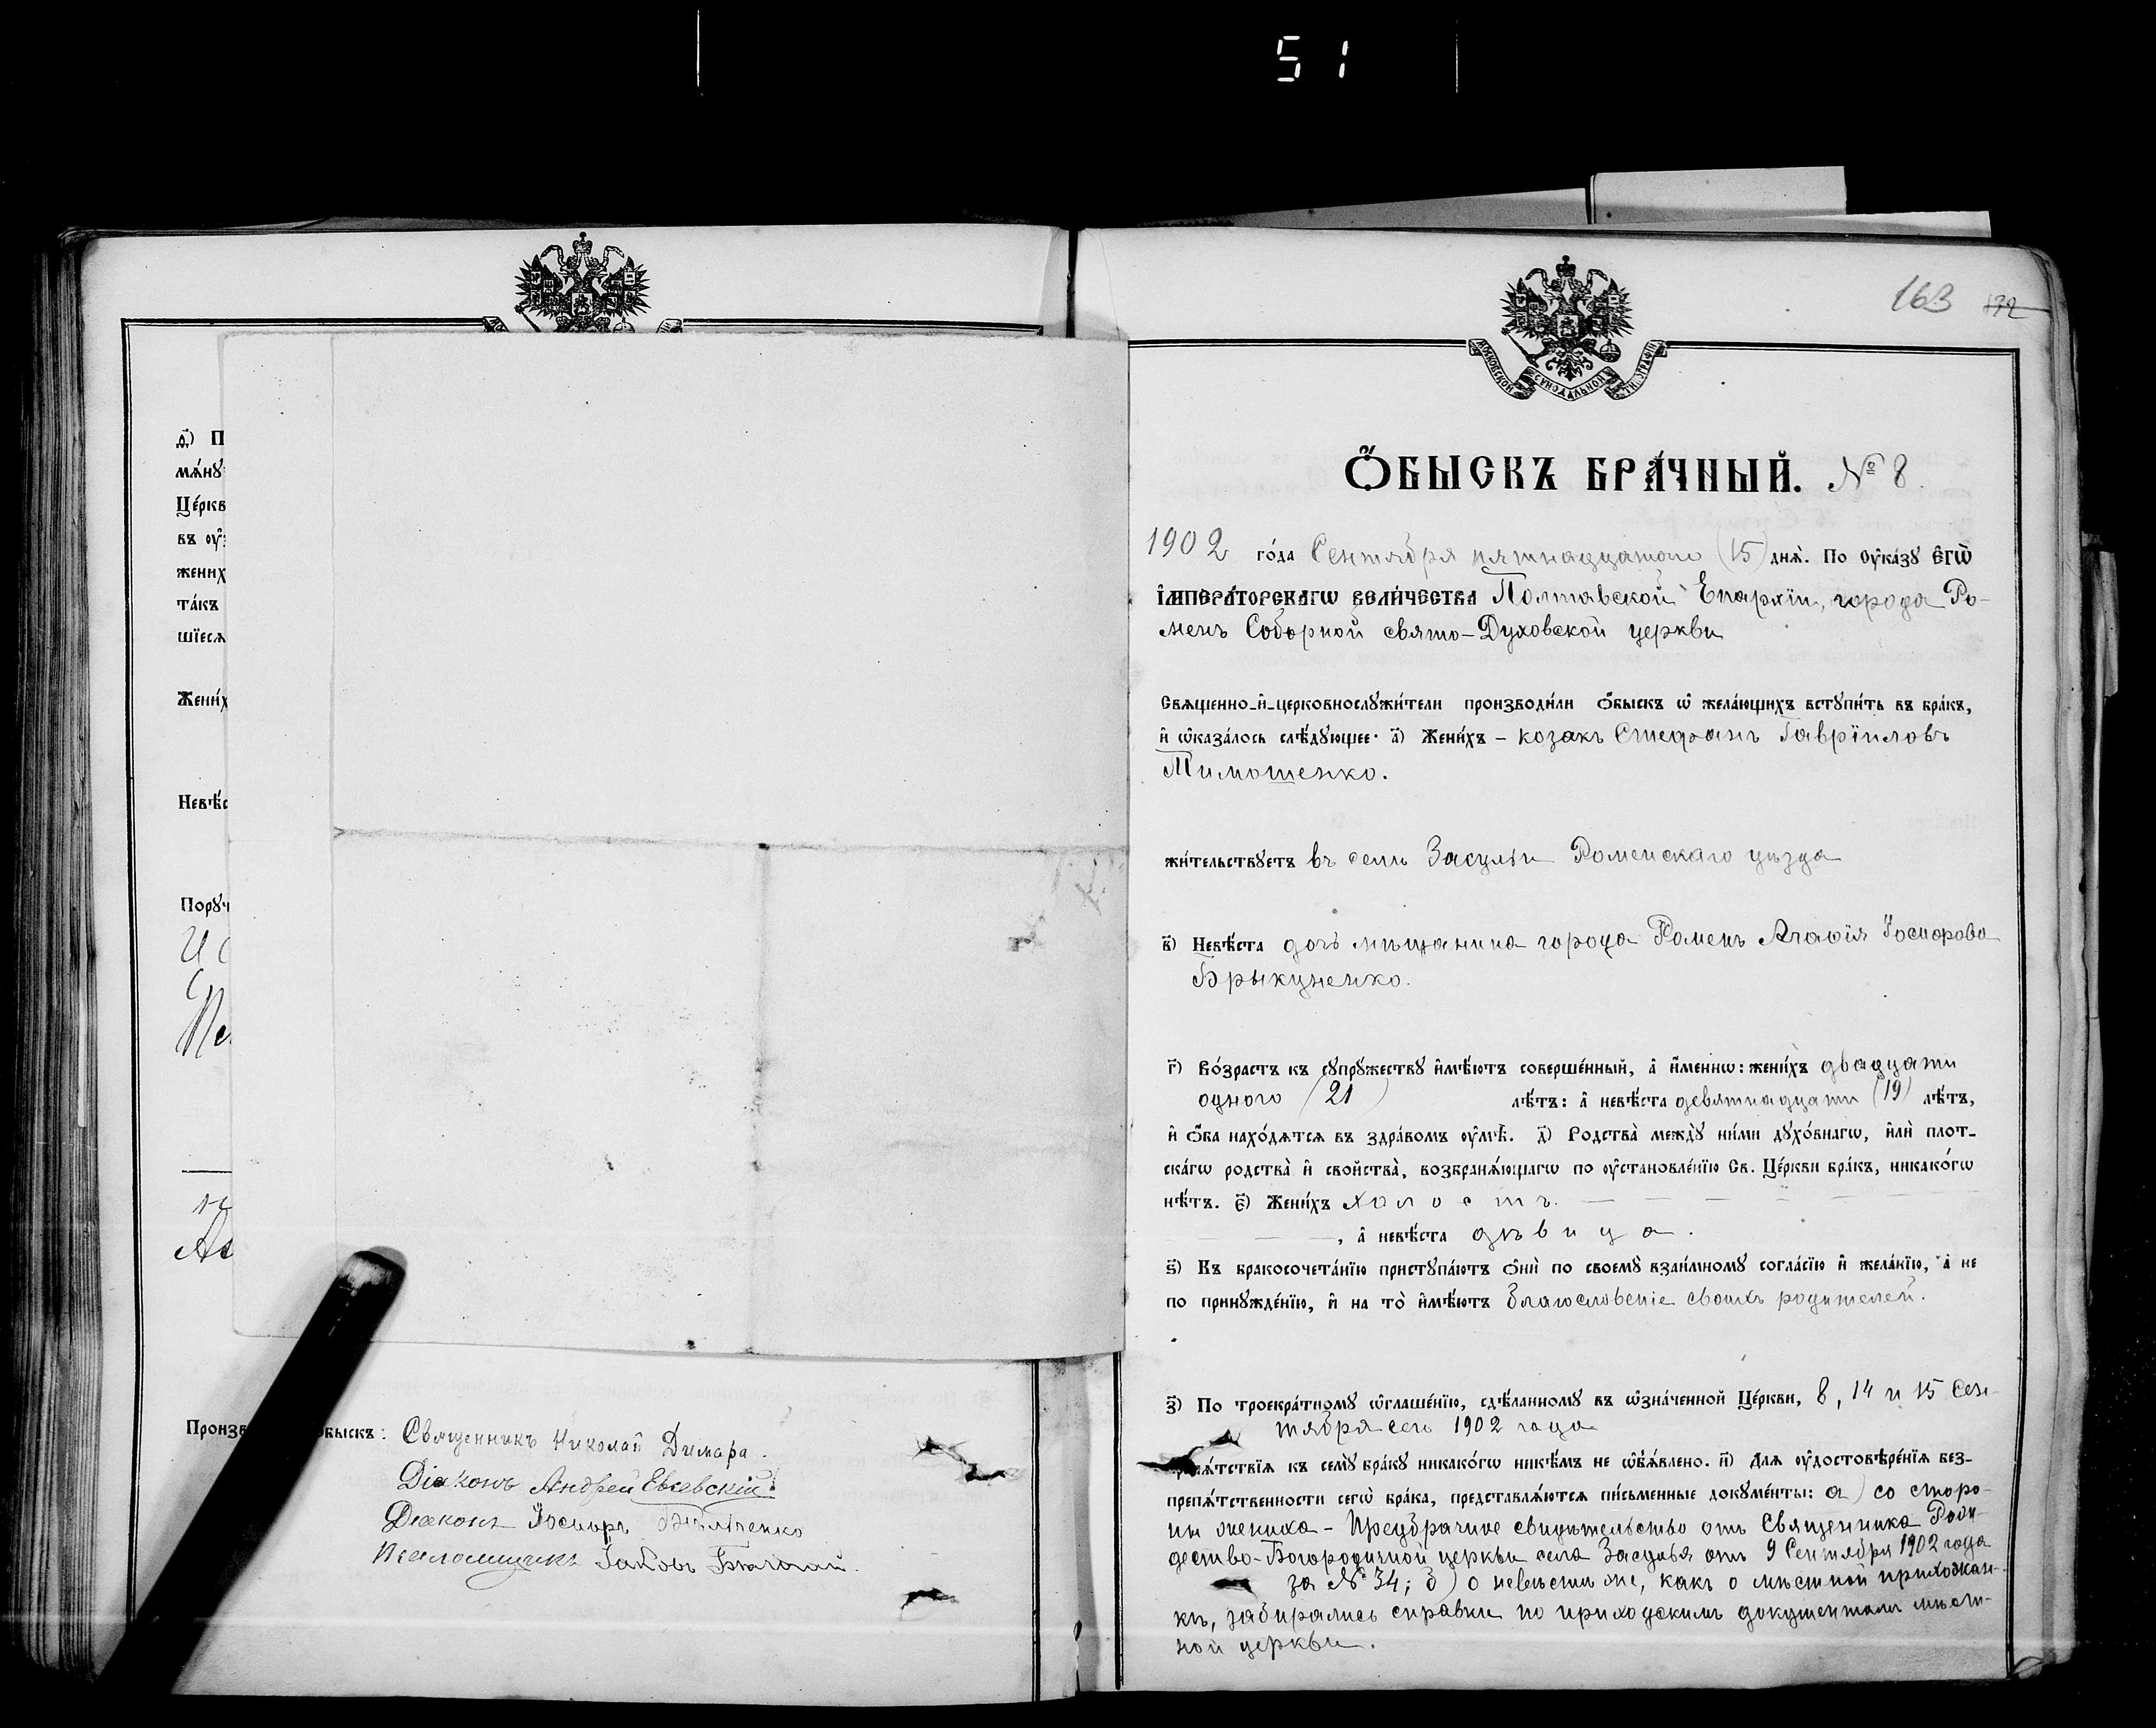 51
а҃) П
мѧ́нꙋ
Це́ркв
въ оу҆
жених
та́къ
шїесѧ
Жени́х
Невѣ́с
Порꙋч
Произв обыскъ: Священникъ Николай Димара.
Діаконъ Андрей Евсевскій
Діаконъ Іосифъ
Псаломщикъ Іаковъ
163 172
МОСКОВСКОЙ СѴНОДАЛЬНОЙ ТИПОГРАФІИ
Ѻ҆БЫСКЪ БРА́ЧНЫЙ. № 8.
1902 го́да Сентября пятнадцатаго (15) днѧ̀. По оу҆ка́зꙋ Є҆ГѠ̀
І҆МПЕРА́ТОРСКАГѠ ВЕЛИ́ЧЕСТВА Полтавской Епархіи, города Ро-
менъ Соборной свято-Духовской церкви
Свѧщенно-и҆-церковнослꙋжи́тели производи́ли ѻ҆́быскъ ѡ҆ жела́ющихъ встꙋпи́ть въ бра́къ,
и҆ ѡ҆каза́лось слѣ́дꙋющее: а҃) Жени́хъ – козакъ Стефанъ Гавріиловъ
Тимошенко.
жи́тельствꙋетъ въ селѣ Засуліи Роменскаго уѣзда
в҃) Невѣ́ста дочь мѣщанина города Роменъ Агафія Іосифова
Брыкуненко.
г҃) Во́зрастъ къ сꙋпрꙋ́жествꙋ и҆мѣ́ютъ соверше́нный, а҆ и҆́меннѡ: жени́хъ двадцати
одного (21) лѣ́тъ: а҆ невѣ́ста девятнадцати (19) лѣ́тъ,
и҆ ѻ҆́ба нахо́дѧтсѧ въ здра́вомъ оу҆мѣ̀. д҃) Родства̀ междꙋ̀ ни́ми дꙋхо́внагѡ, и҆лѝ плот-
ска́гѡ родства̀ и҆ сво́йства̀, возбранѧ́ющагѡ по оу҆становле́нїю Св. Це́ркви бра́къ, никако́гѡ
нѣ́тъ. є҃) Жени́хъ холостъ.
, а҆ невѣ́ста дѣвица.
ѕ҃) Къ бракосочета́нїю пристꙋпа́ютъ ѻ҆нѝ по своемꙋ̀ взаи́мномꙋ согла́сїю и҆ жела́нїю, а҆ не
по принꙋжде́нїю, и҆ на то̀ и҆мѣ́ютъ благословеніе своихъ родителей.
з҃) По троекра́тномꙋ ѡ҆глаше́нїю, сдѣ́ланномꙋ въ ѡ҆зна́ченной Це́ркви, 8, 14 и 15 Сен-
тября сего 1902 года
препѧ́тствїѧ къ семꙋ̀ бра́кꙋ никако́гѡ никѣ́мъ не ѡ҆б̾ѧ́влено. и҃) Длѧ оу҆достовѣре́нїѧ без-
препѧ́тственности сегѡ̀ бра́ка, представлѧ́ютсѧ пи́сьменные докꙋме́нты: а) со сторо-
ны жениха – Предбрачное свидѣтельство отъ Священника Рож-
дество-Богородичной церкви села Засулья отъ 9 Сентября 1902 года
за № 34; б) о невѣстѣ же, какъ о мѣстной прихожан-
кѣ, забирались справки по приходскимъ документамъ мѣст-
ной церкви.